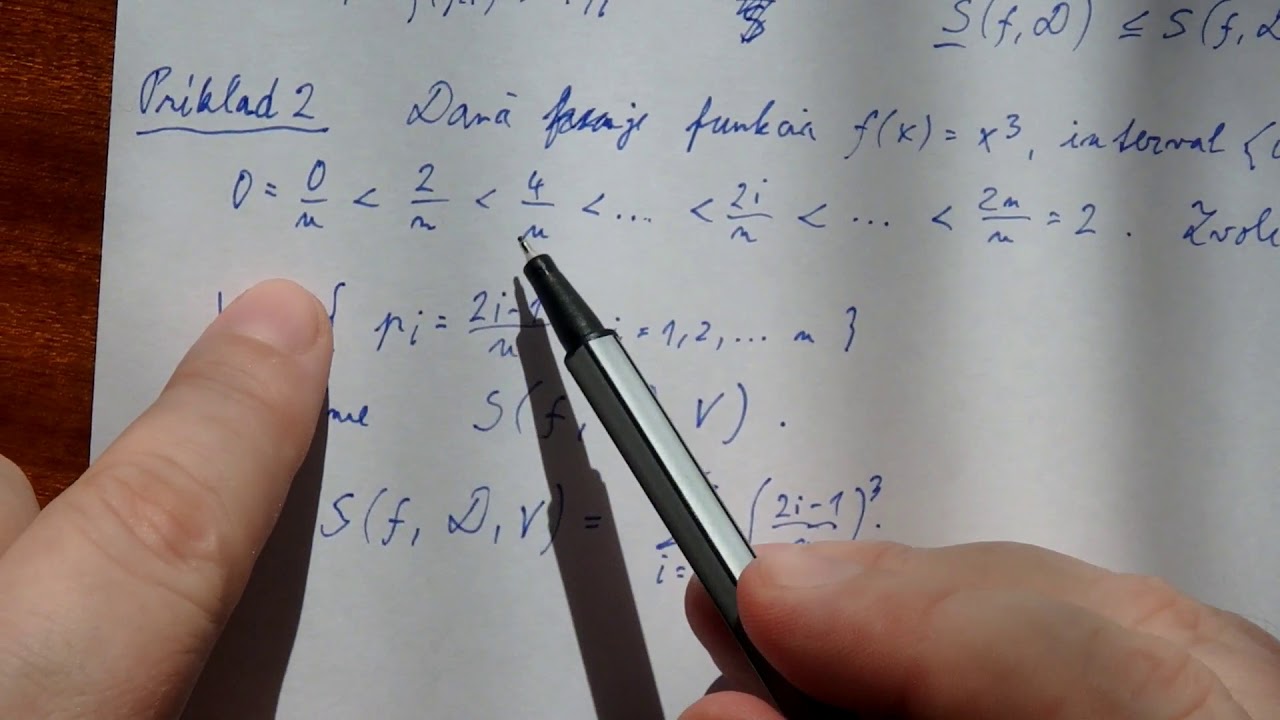 S(f, D) ≤ S(f, D
Príklad 2 Daná je funkcia f(x) = x³, interval ⟨0
0 = 0/n < 2/n < 4/n < ... < 2i/n < ... < 2n/n = 2. Zvol
p_i = (2i-1)/n = 1, 2, ... n }
S(f, V).
S(f, D, V) = i= ((2i-1)/n)³.